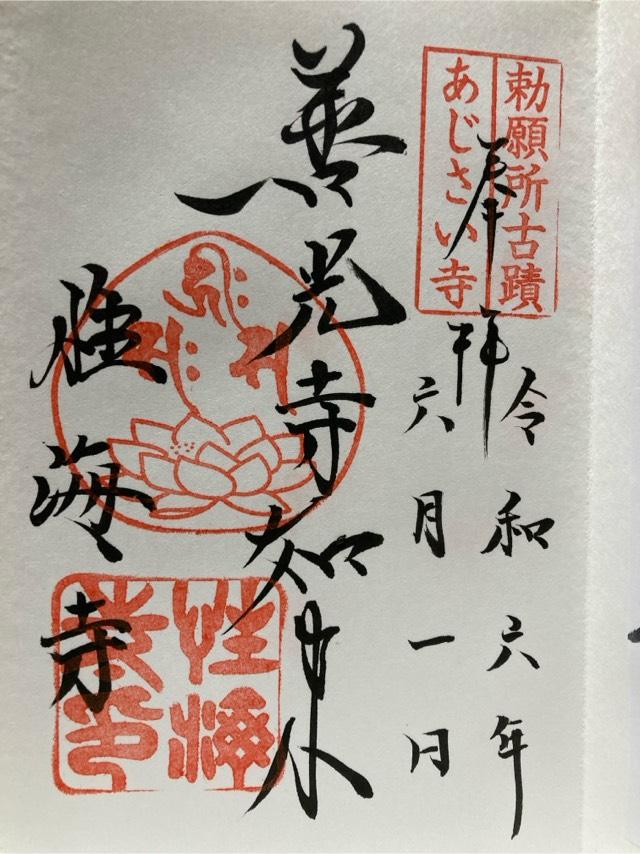 勅願所古蹟
あじさい寺
奉拝
令和六年
六月一日
善光寺如来
性海寺
性海
寺印